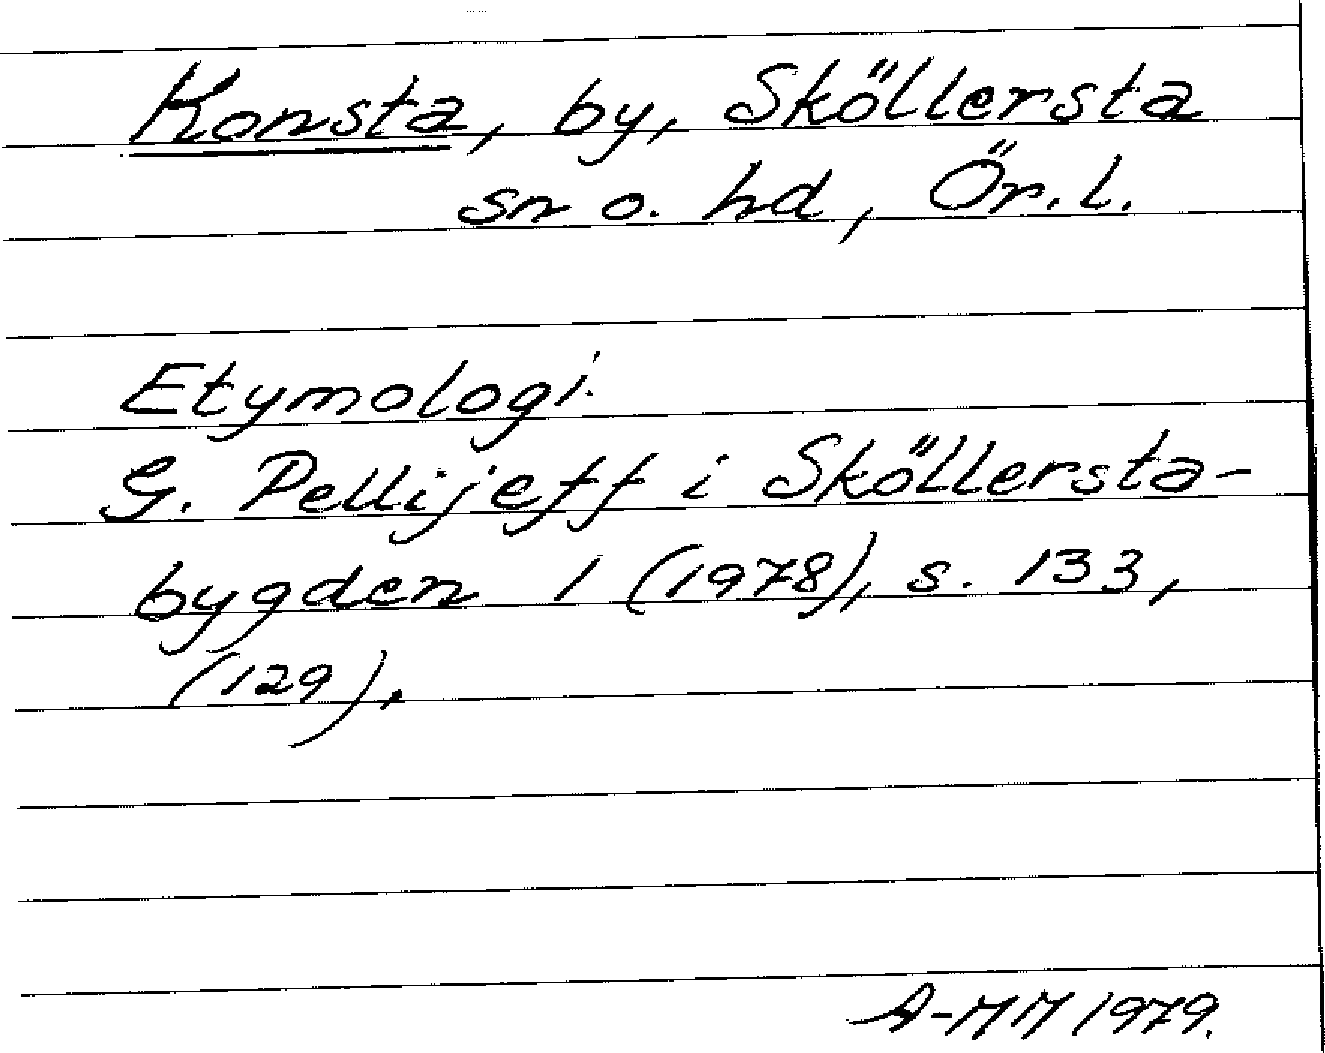 Konsta, by, Sköllersta
sn o. hd, Ör. l.
Etymologi.
G. Pellijeff i Sköllersta-
bygden 1 (1978), s. 133,
(129).
A-MM 1979.